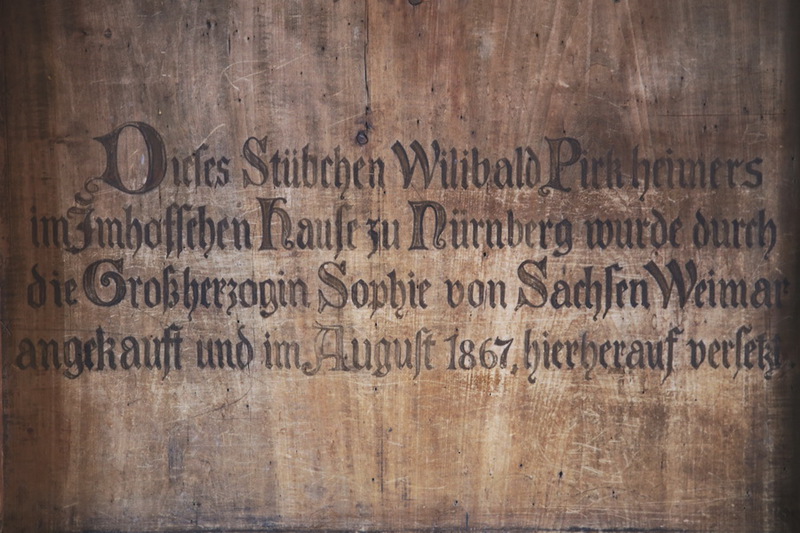 Dieses Stübchen Wilibald Pirkheimers
im Imhofschen Hause zu Nürnberg wurde durch
die Großherzogin Sophie von Sachsen Weimar
angekauft und im August 1867, hierherauf versetzt.